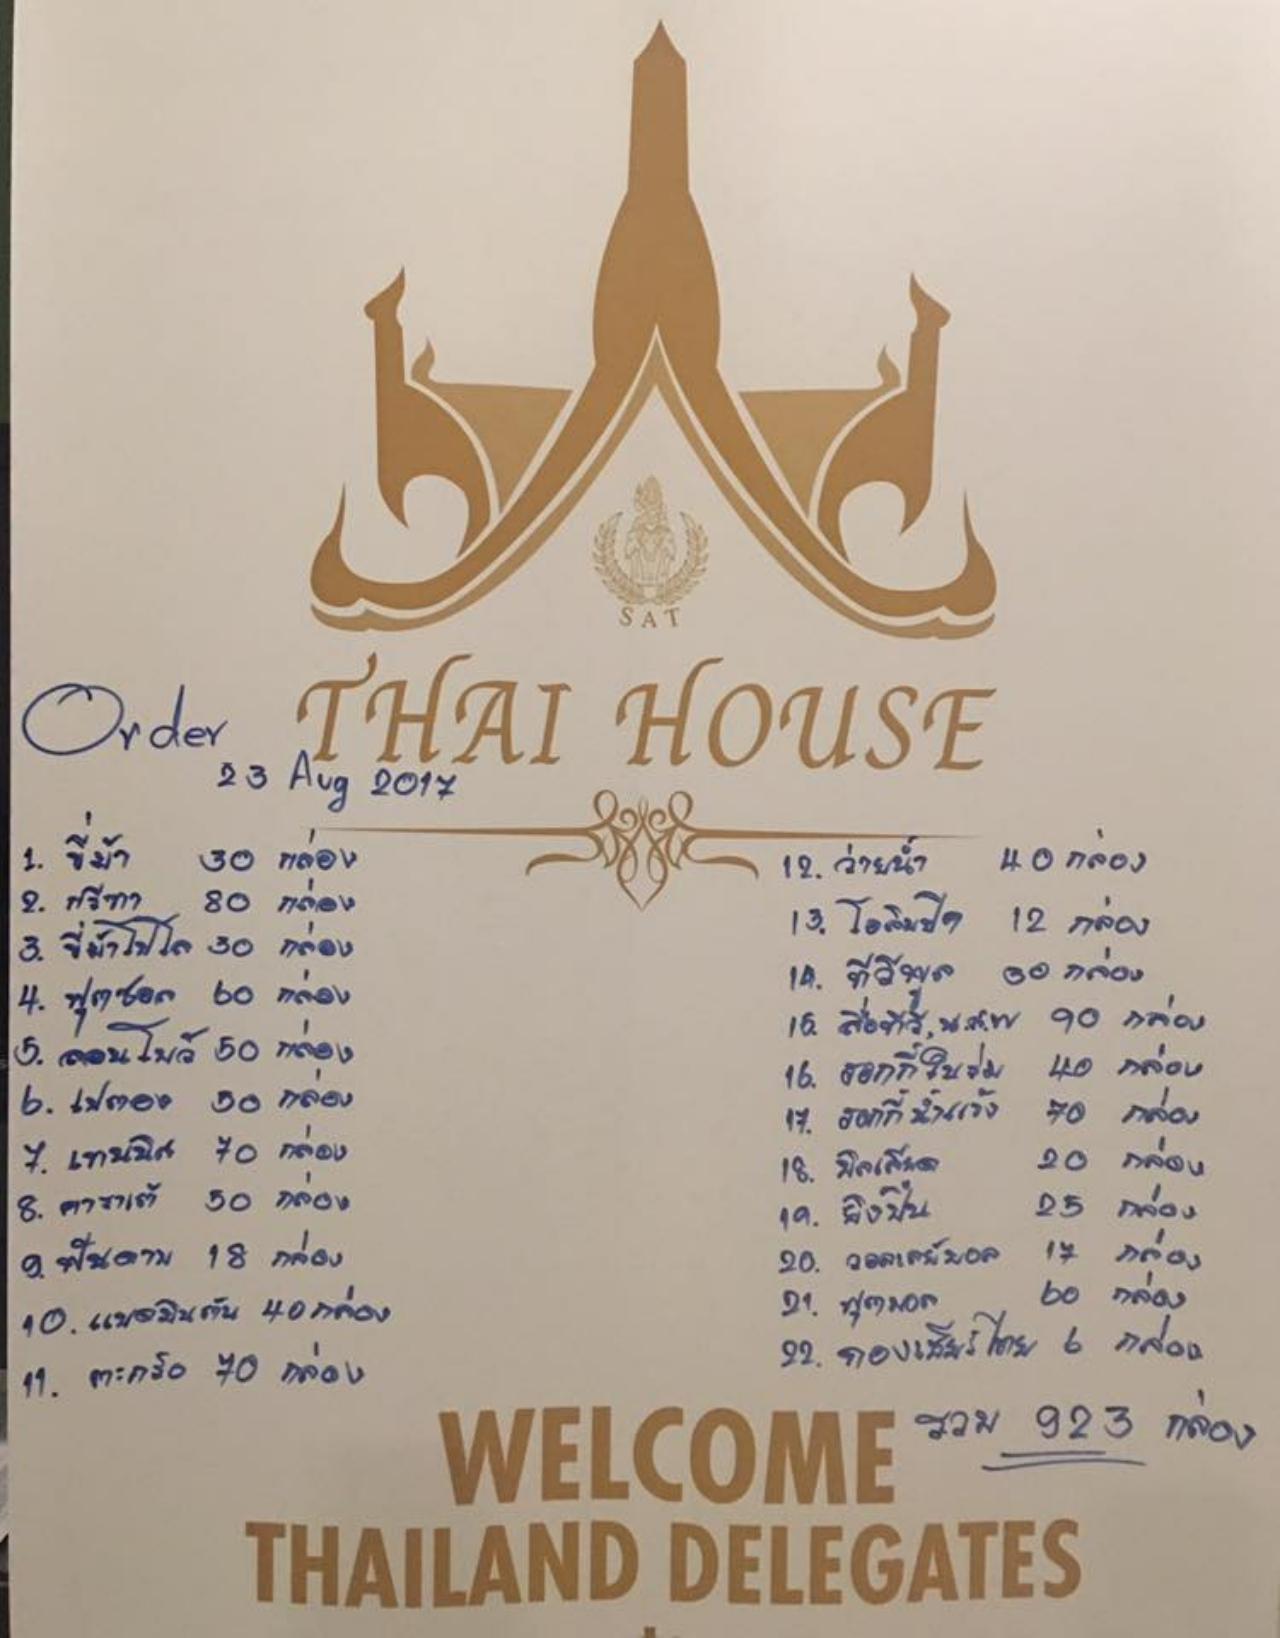 SAT
THAI HOUSE
Order
23 Aug 2017
1. ขี่ม้า 30 กล่อง
2. กรีฑา 80 กล่อง
3. ขี่ม้าโปโล 30 กล่อง
4. ฟุตซอล 60 กล่อง
5. ลอนโบว์ 50 กล่อง
6. เปตอง 50 กล่อง
7. เทนนิส 70 กล่อง
8. คาราเต้ 50 กล่อง
9. ฟันดาบ 18 กล่อง
10. แบดมินตัน 40 กล่อง
11. ตะกร้อ 70 กล่อง
12. ว่ายน้ำ 40 กล่อง
13. โอลิมปิค 12 กล่อง
14. ทีวีพูล 30 กล่อง
15. สื่อทีวี, น.ส.พ 90 กล่อง
16. ฮอกกี้ในร่ม 40 กล่อง
17. ฮอกกี้น้ำแข็ง 70 กล่อง
18. บิลเลียด 20 กล่อง
19. ยิงปืน 25 กล่อง
20. วอลเลย์บอล 17 กล่อง
21. ฟุตบอล 60 กล่อง
22. กองเชียร์ไทย 6 กล่อง
รวม 923 กล่อง
WELCOME
THAILAND DELEGATES